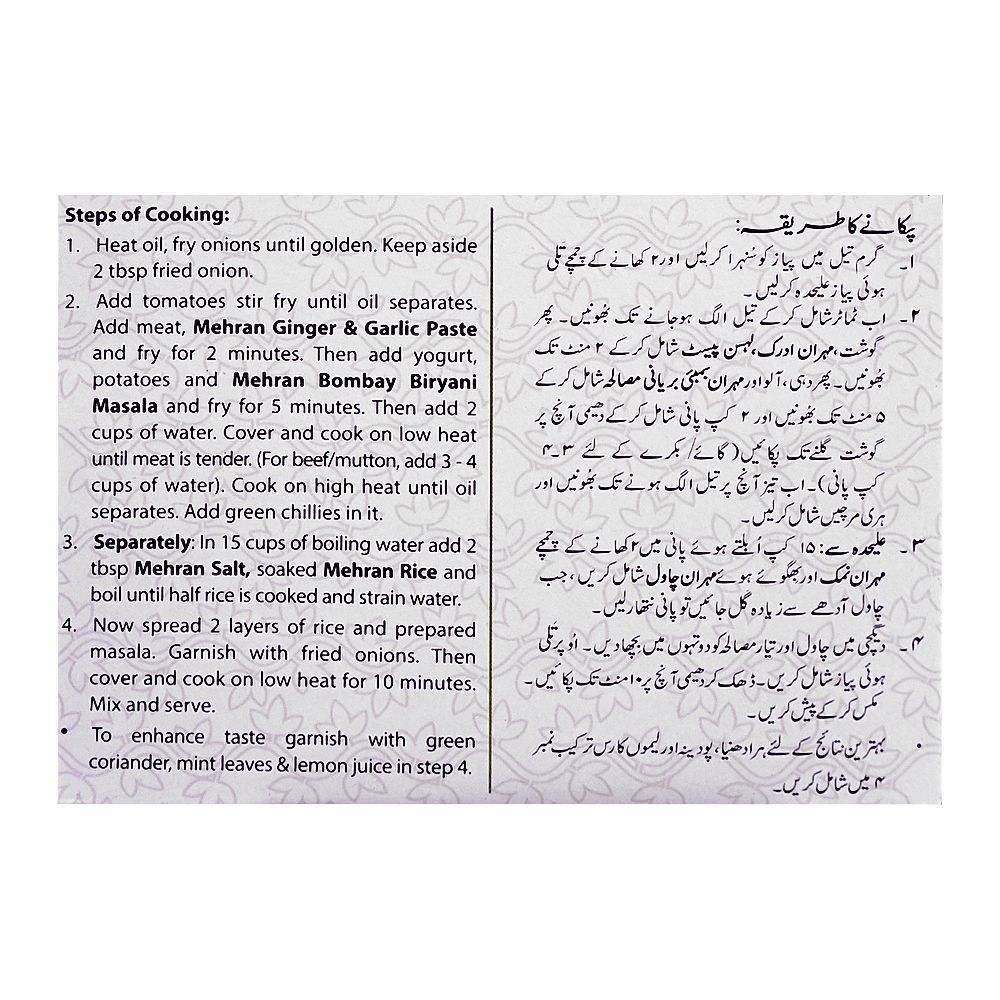 Steps of Cooking:
1. Heat oil, fry onions until golden. Keep aside
2 tbsp fried onion.
2. Add tomatoes stir fry until oil separates.
Add meat, Mehran Ginger & Garlic Paste
and fry for 2 minutes. Then add yogurt,
potatoes and Mehran Bombay Biryani
Masala and fry for 5 minutes. Then add 2
cups of water. Cover and cook on low heat
until meat is tender. (For beef/mutton, add 3 - 4
cups of water). Cook on high heat until oil
separates. Add green chillies in it.
3. Separately: In 15 cups of boiling water add 2
tbsp Mehran Salt, soaked Mehran Rice and
boil until half rice is cooked and strain water.
4. Now spread 2 layers of rice and prepared
masala. Garnish with fried onions. Then
cover and cook on low heat for 10 minutes.
Mix and serve.
• To enhance taste garnish with green
coriander, mint leaves & lemon juice in step 4.
پکانے کا طریقہ:
۱۔ گرم تیل میں پیاز کو سُنہرا کرلیں اور ۲ کھانے کے چمچے تلی
ہوئی پیاز علیحدہ کرلیں۔
۲۔ اب ٹماٹر شامل کرکے تیل الگ ہوجانے تک بھُونیں۔ پھر
گوشت، مہران ادرک، لہسن پیسٹ شامل کرکے ۲ منٹ تک
بھُونیں۔ پھر دہی، آلو اور مہران بمبئی بریانی مصالحہ شامل کرکے
۵ منٹ تک بھُونیں اور ۲ کپ پانی شامل کرکے دھیمی آنچ پر
گوشت گلنے تک پکائیں (گائے/ بکرے کے لئے ۳۔۴
کپ پانی)۔ اب تیز آنچ پر تیل الگ ہونے تک بھُونیں اور
ہری مرچیں شامل کرلیں۔
۳۔ علیحدہ سے: ۱۵ کپ اُبلتے ہوئے پانی میں ۲ کھانے کے چمچے
مہران نمک اور بھگوئے ہوئے مہران چاول شامل کریں، جب
چاول آدھے سے زیادہ گل جائیں تو پانی نتھارلیں۔
۴۔ دیگچی میں چاول اور تیار مصالحہ کو دو تہوں میں بچھا دیں۔ اوپر تلی
ہوئی پیاز شامل کریں۔ ڈھک کر دھیمی آنچ پر ۱۰ منٹ تک پکائیں۔
مکس کرکے پیش کریں۔
• بہترین نتائج کے لئے ہرا دھنیا، پودینہ اور لیموں کا رس ترکیب نمبر
۴ میں شامل کریں۔